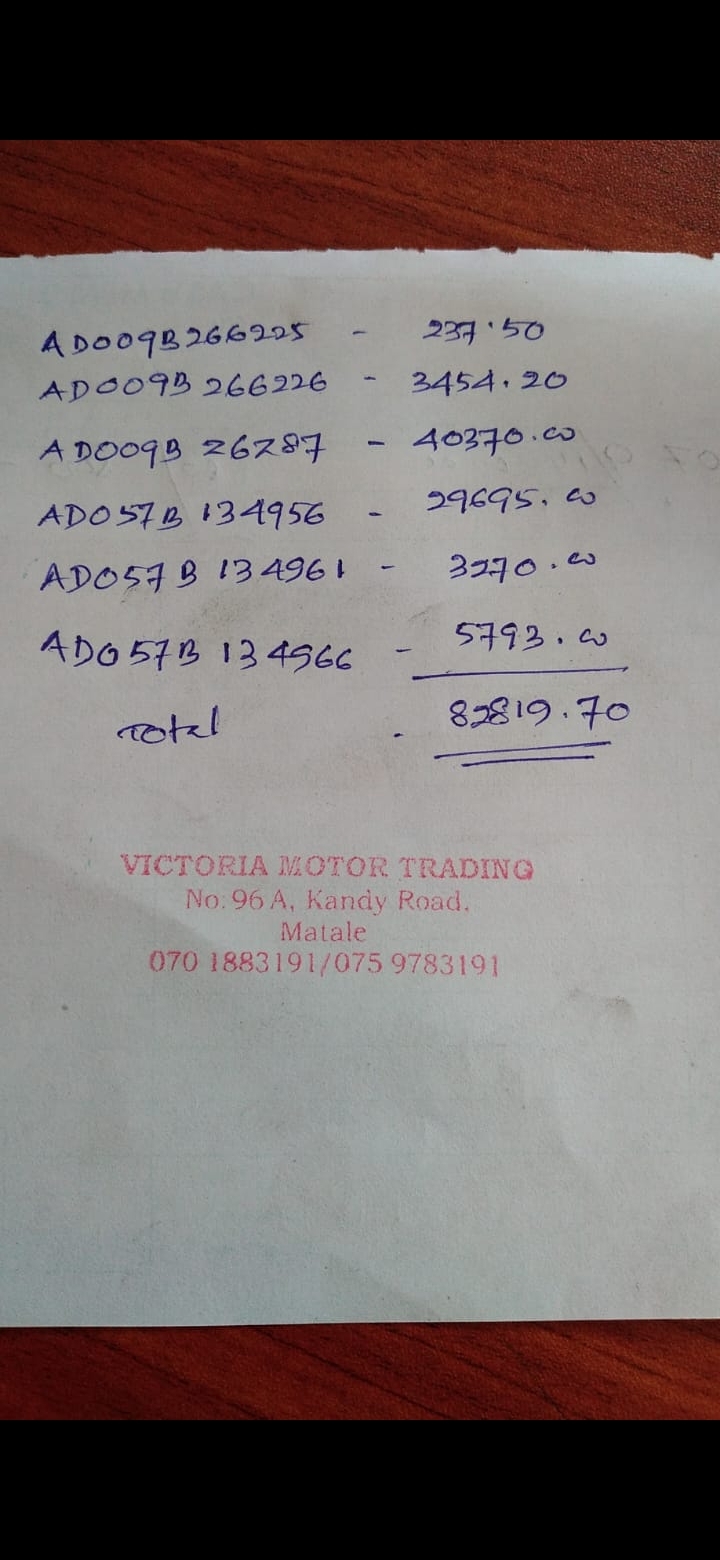 AD009B266225 - 237.50
AD009B 266226 - 3454.20
AD009B 26287 - 40370.00
AD057B 134956 - 29695.00
AD057B 134961 - 3270.00
AD057B 134966 - 5793.00
Total - 82819.70
VICTORIA MOTOR TRADING
No: 96 A, Kandy Road,
Matale
070 1883191/075 9783191